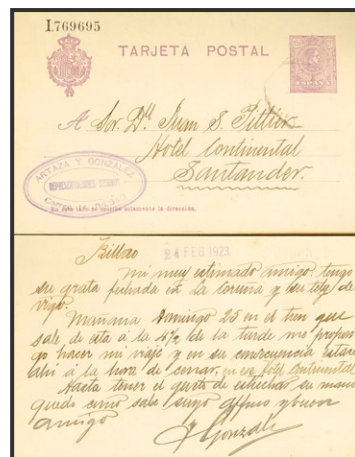 I769695
TARJETA POSTAL
ESPAÑA
A Sor. Dn. Juan S.
Hotel Continental
Santander.
ARTAZA Y GONZALEZ
REPRESENTACIONES
En este lado se escribe solamente la dirección.
Bilbao 24 FEB 1923
mi muy estimado amigo: tengo
su grata fechada en La Coruña y su telg. de
Vigo.
Mañana domingo 25 en el tren que
sale de esta á la de la tarde me propon
go hacer mi viaje y en su consecuencia estaré
ahí á la hora de cenar, en ese Hotel Continental
Hasta tener el gusto de estrechar su mano
queda como sabe suyo affmo y buen
amigo
Gonzalez